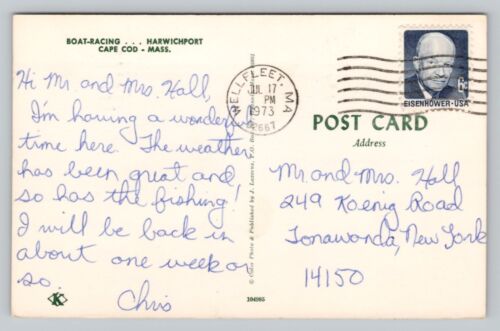 BOAT-RACING . . . HARWICHPORT
CAPE COD - MASS.
Hi Mr. and Mrs. Hall,
I'm having a wonderful
time here. The weather
has been great and
so has the fishing!
I will be back in
about one week or
so.
Chris
K
104985
WELLFLEET, MA
JUL 17
PM
1973
02667
6c
EISENHOWER·USA
POST CARD
Address
Mr. and Mrs. Hall
249 Koenig Road
Tonawanda, New York
14150